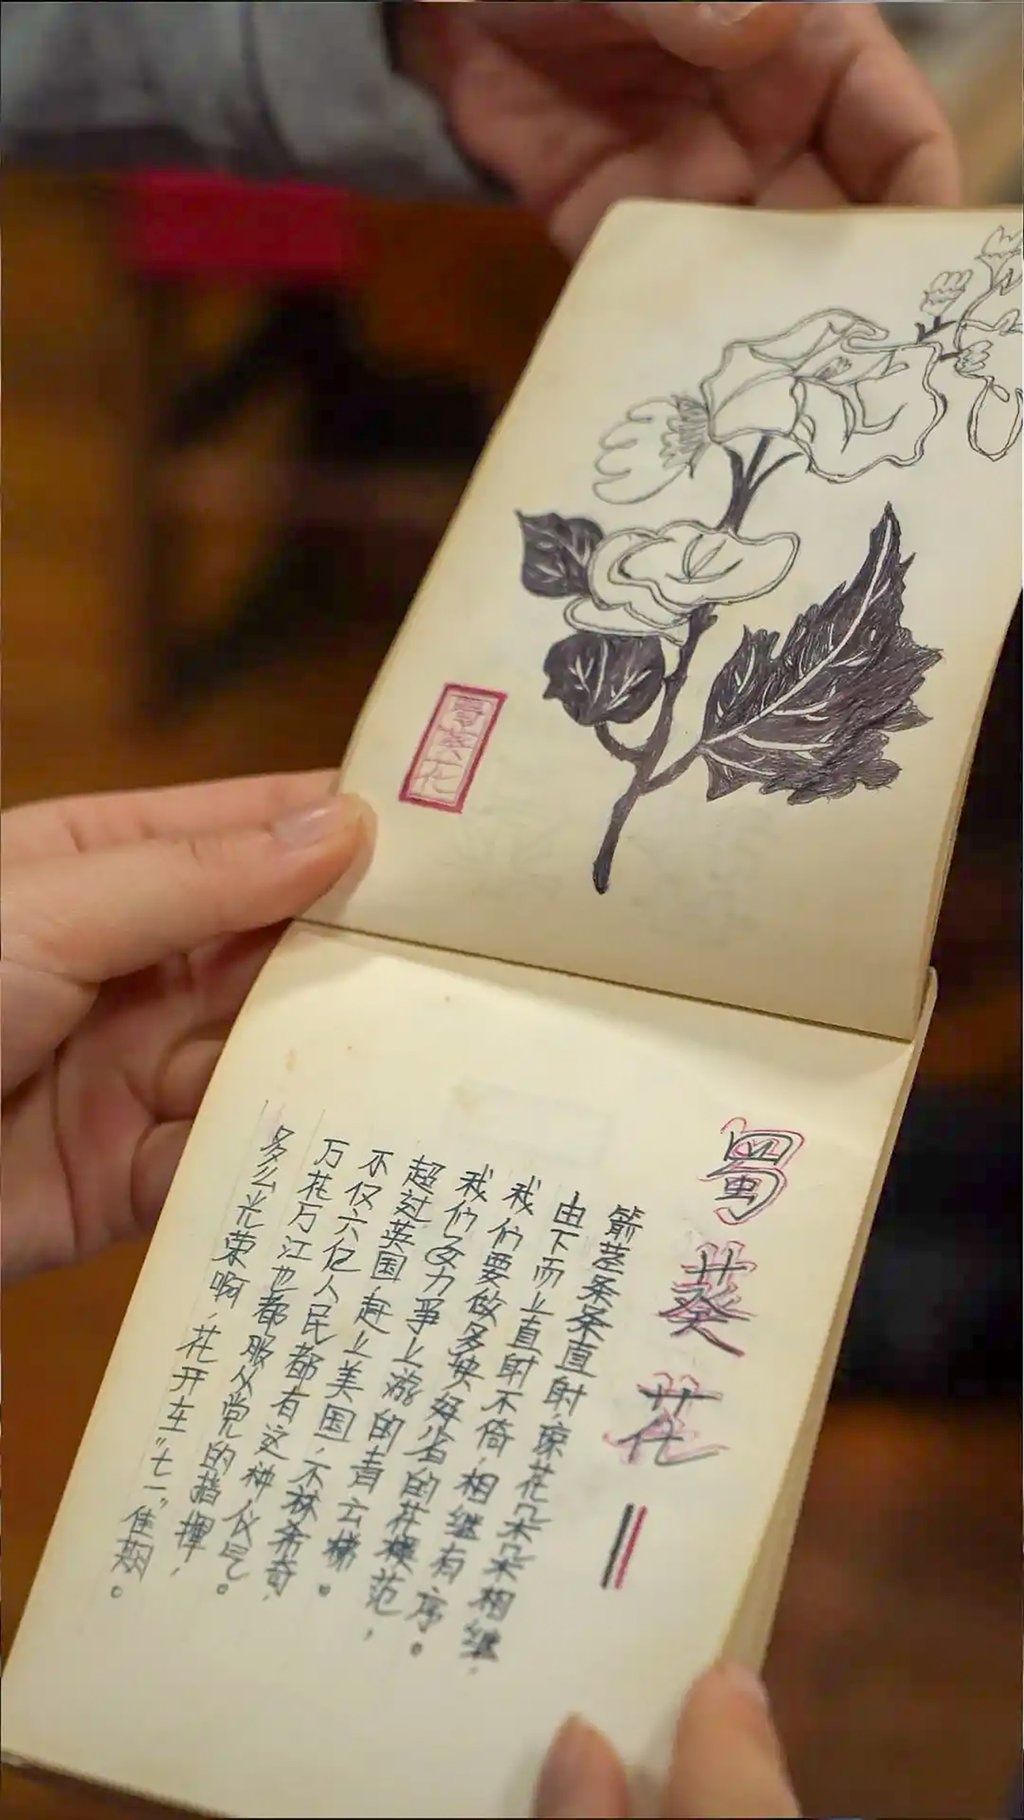 蜀葵花
蜀葵花
箭茎条条直射,琼花朵朵相继,
由下而上直射不倚,相继有序。
我们要做多快好省的花模范,
我们力争上游的青云梯。
超过英国,赶上美国,不希奇,
不仅六亿人民都有这种气。
万花万江也都服从党的指挥,
多么光荣啊,花开在“七一”佳期。